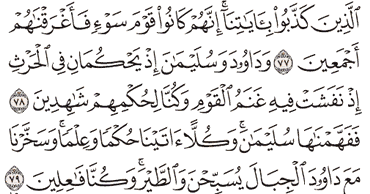 الَّذِينَ كَذَّبُوا۟ بِـَٔايَٰتِنَآ ۚ إِنَّهُمْ كَانُوا۟ قَوْمَ سَوْءٍ فَأَغْرَقْنَٰهُمْ
أَجْمَعِينَ ﴿٧٧﴾ وَدَاوُۥدَ وَسُلَيْمَٰنَ إِذْ يَحْكُمَانِ فِى الْحَرْثِ
إِذْ نَفَشَتْ فِيهِ غَنَمُ الْقَوْمِ وَكُنَّا لِحُكْمِهِمْ شَٰهِدِينَ ﴿٧٨﴾
فَفَهَّمْنَٰهَا سُلَيْمَٰنَ ۚ وَكُلًّا ءَاتَيْنَا حُكْمًا وَعِلْمًا ۚ وَسَخَّرْنَا
مَعَ دَاوُۥدَ الْجِبَالَ يُسَبِّحْنَ وَالطَّيْرَ ۚ وَكُنَّا فَٰعِلِينَ ﴿٧٩﴾